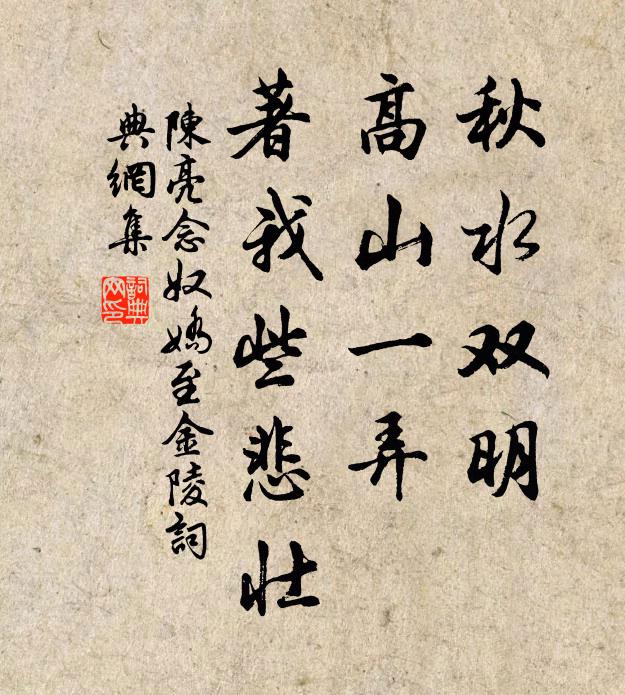 秋水双明
高山一弄
著我些悲壮
陳亮念奴嬌至金陵詞
典網集
詞典網印